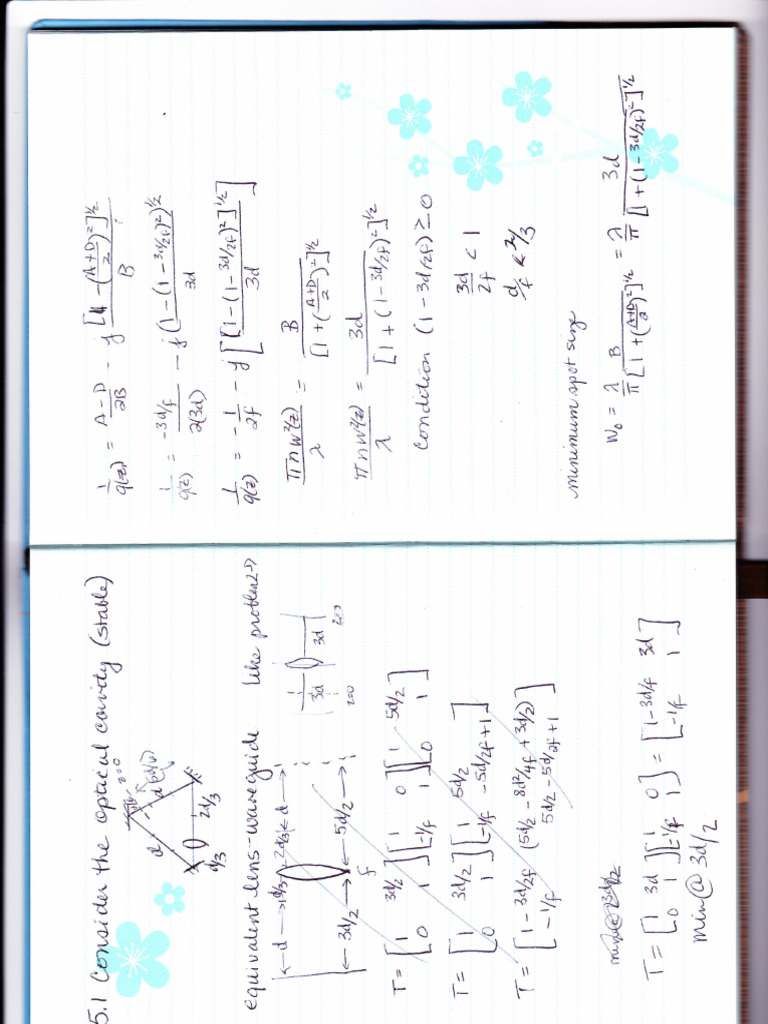 5.1 Consider the optical cavity (stable)
z=0
d
d
d/3
2d/3
equivalent lens-waveguide like problem 2→
←d→ d/3 2d/3 ←d→
← 3d/2 → ← 5d/2 →
f
3d
3d
z=0
z=0
T = [1 3d/2; 0 1][1 0; -1/f 1][1 5d/2; 0 1]
T = [1 3d/2; 0 1][1 5d/2; -1/f -5d/2f+1]
T = [1-3d/2f (5d/2 - 8d²/4f + 3d/2); -1/f 5d/2-5d/2f+1]
T = [1 3d; 0 1][1 0; -1/f 1] = [1-3d/f 3d; -1/f 1]
min @ 3d/2
1/q(z) = A-D/2B - j [1-(A+D/2)²]^½/B
1/q(z) = -3d/f/2(3d) - j (1-(1-3d/2f)²)^½/3d
1/q(z) = -1/2f - j [[1-(1-3d/2f)²]^½/3d]
πnw²(z)/λ = B/[1+(A+D/2)²]^½
πnw²(z)/λ = 3d/[1+(1-3d/2f)²]^½
Condition (1-3d/2f) ≥ 0
3d/2f < 1
d/f < 2/3
minimum spot size
W₀ = λ/π B/[1+(A+D/2)²]^½ = λ/π 3d/[1+(1-3d/2f)²]^½